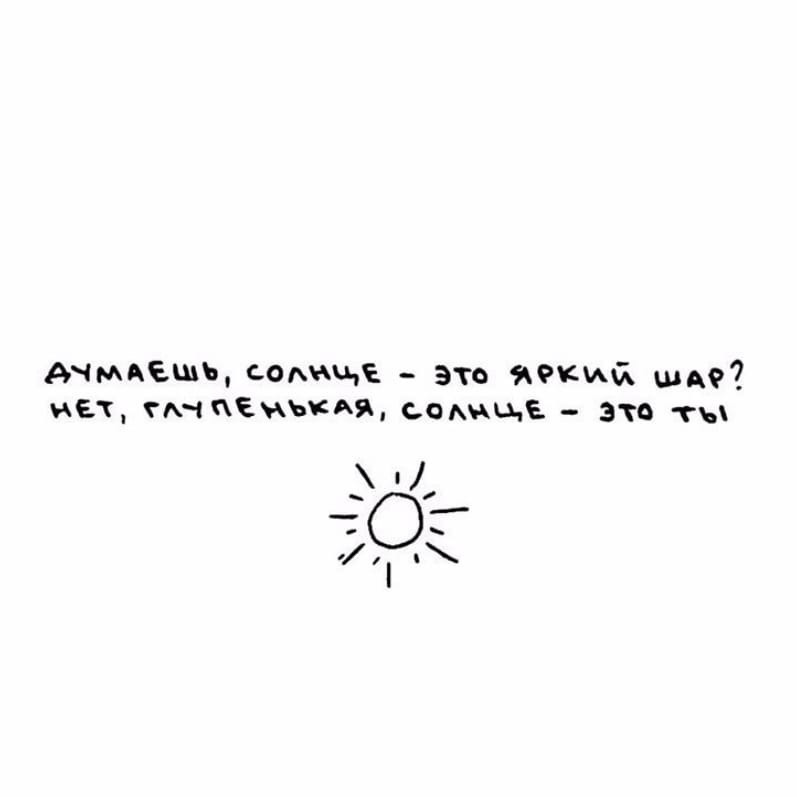 ДУМАЕШЬ, СОЛНЦЕ - ЭТО ЯРКИЙ ШАР?
НЕТ, ГЛУПЕНЬКАЯ, СОЛНЦЕ - ЭТО ТЫ